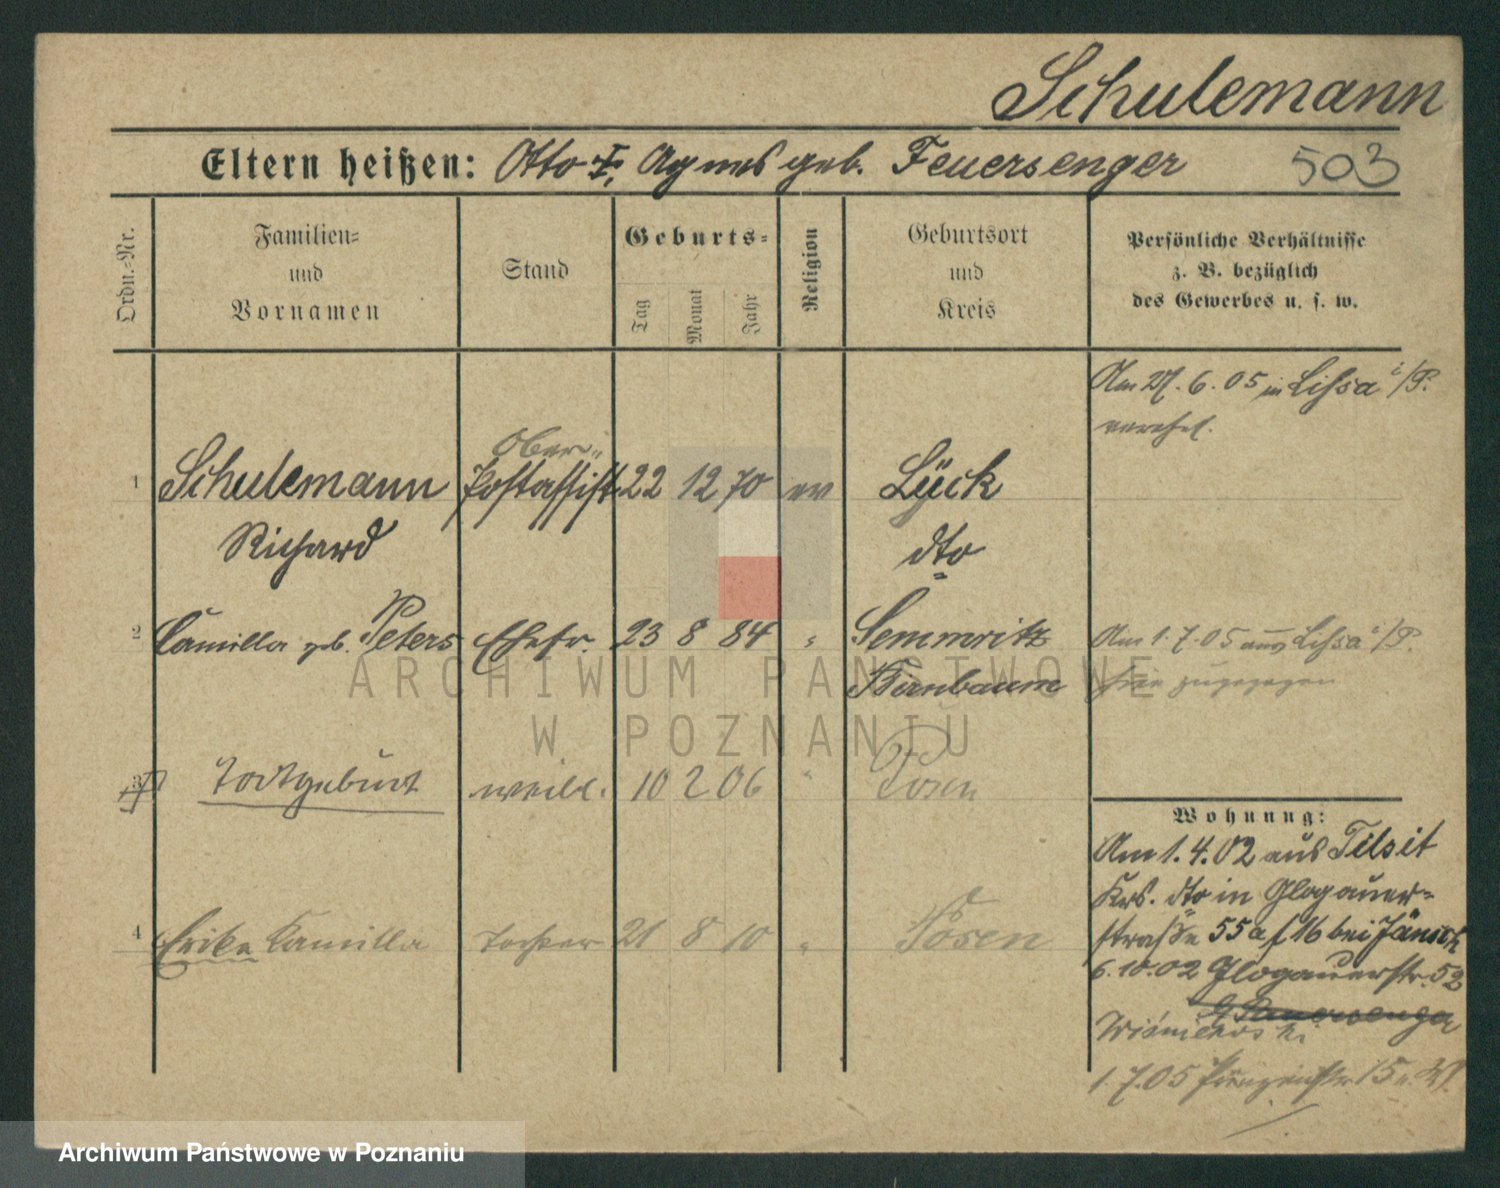 Schulemann
Eltern heißen: Otto I, Agnes geb. Feuersenger 503
Ordn.-Nr.
Familien-
und
Vornamen
Stand
Geburts-
Tag
Monat
Jahr
Religion
Geburtsort
und
Kreis
Persönliche Verhältnisse
z. B. bezüglich
des Gewerbes u. s. w.
Am 27. 6. 05 in Lissa i/P.
verehel.
Ober-
1 Schulemann Postassist. 22 12 70 ev Lück
Richard dto
2 Camilla geb. Peters Ehefr. 23 8 84 " Semmritz
Birnbaum
Am 1. 7. 05 aus Lissa i/P.
hier zugezogen
3 Todtgeburt weibl. 10 2 06 " Posen
4 Erika Kamilla Tochter 21 8 10 " Posen
Wohnung:
Am 1. 4. 02 aus Tilsit
Krs. dto in Glogauer-
straße 55a f 16 bei Jänsch
6. 10. 02 Glogauerstr. 52
1. 7. 05 15
ARCHIWUM PAŃSTWOWE
W POZNANIU
Archiwum Państwowe w Poznaniu